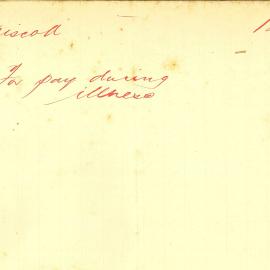 iscoll
For pay during
illness